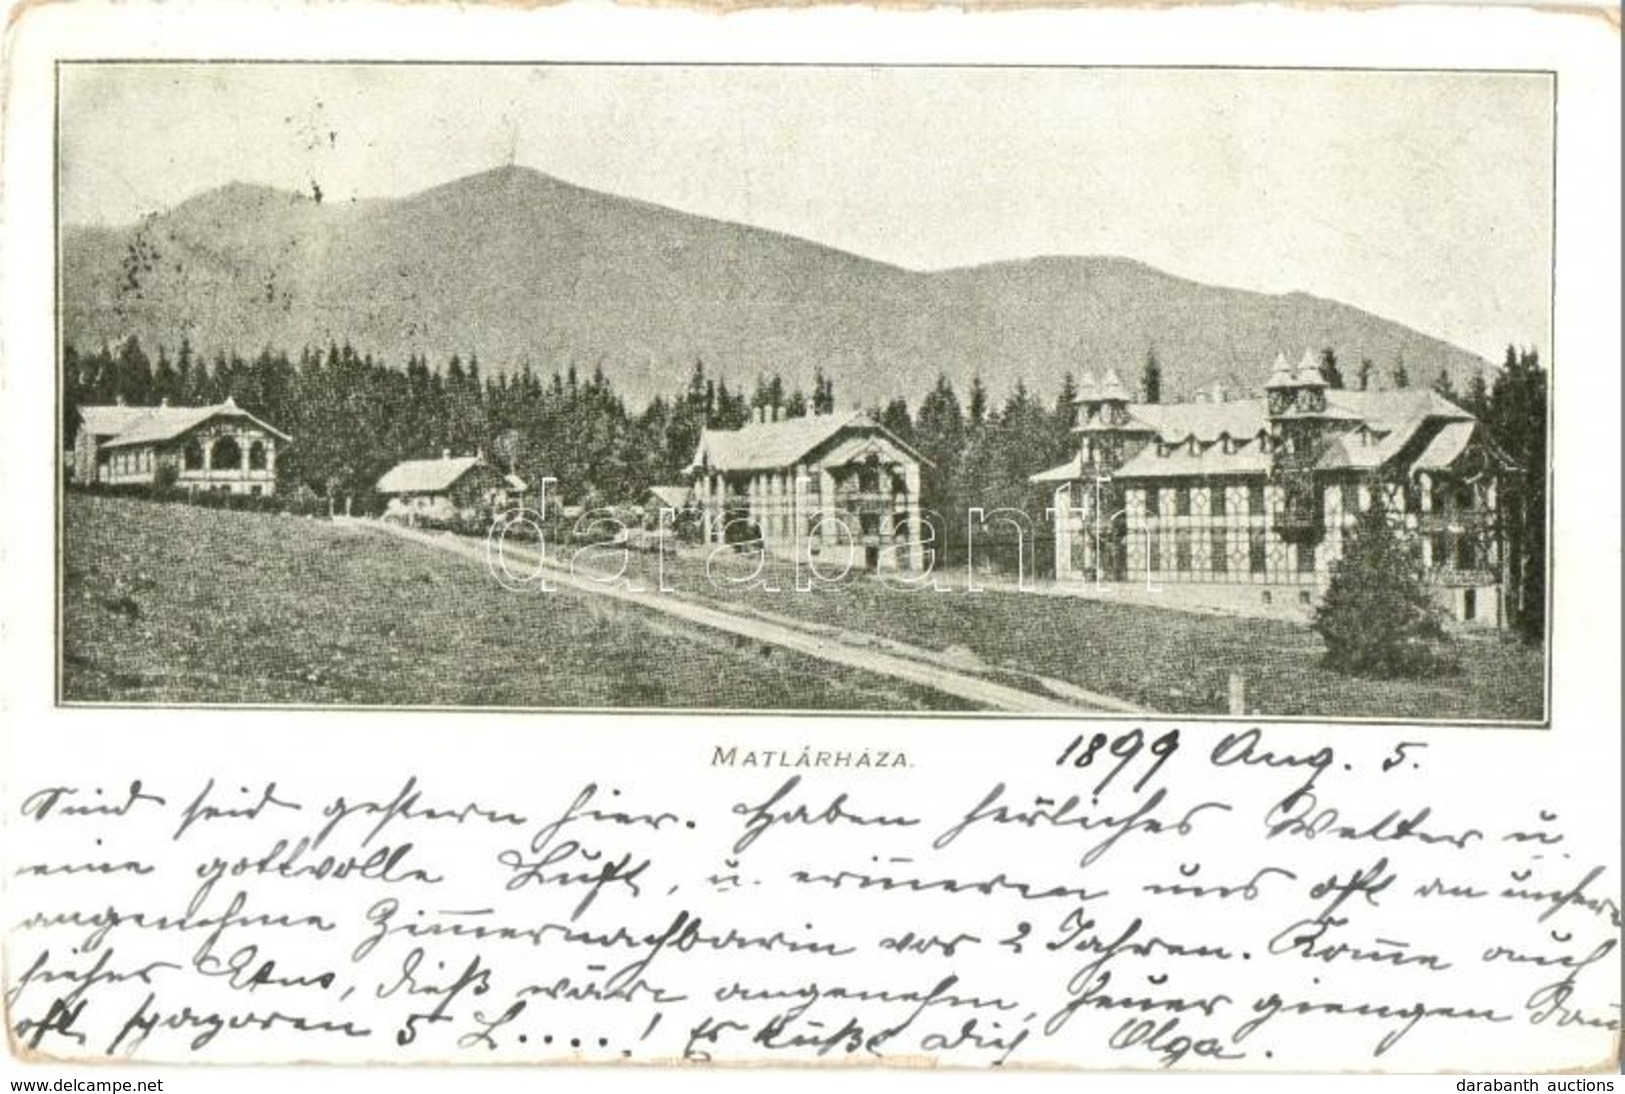 MATLÁRHÁZA.
1899 Aug. 5.
Sind seid gestern hier. Haben herrliches Wetter u.
eine gottvolle Luft, u. erinneren uns oft an unsere
angenehme Zimmernachbarin vor 2 Jahren. Kome auch
hieher, dieß wäre angenehm,
oft spazoren 5 L....! Es küßt Dich Olga.
databanth
www.delcampe.net
darabanth auctions